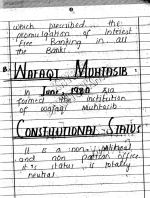 which prescribed the
promulgation of Interest
Free Banking in all
the Banks.
WAFAQI MUHTASIB:
in June, 1980 zia
formed the institution
of wafaqi Muhtasib
CONSTITUTIONAL STATUS
It is a non political
and non partian office
its status is totally
neutral